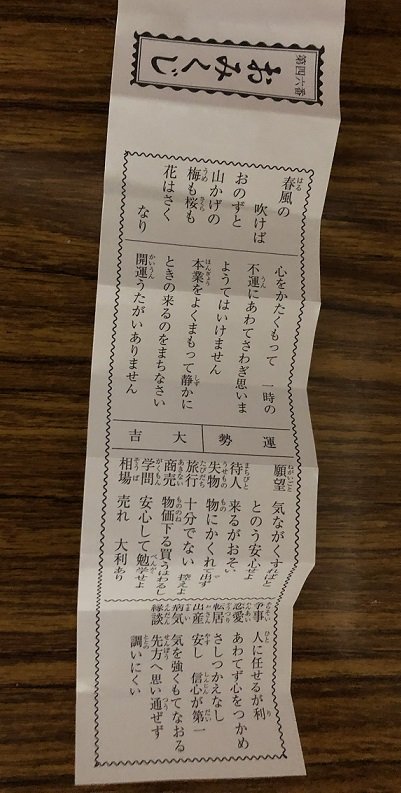 第四六番
おみくじ
春風の
吹けば
おのずと
山かげの
梅も桜も
花はさく
なり
心をかたくもって 一時の
不運にあわてさわぎ思いま
ようてはいけません
本業をよくまもって静かに
ときの来るのをまちなさい
開運うたがいありません
運勢 大吉
願望 気ながくすればと
とのう安心よ
待人 来るがおそい
失物 物にかくれ出ず
旅行 十分でない 控えよ
商売 物価下る買うはわるし
学問 安心して勉学せよ
相場 売れ 大利あり
争事 人に任せるが利
恋愛 あわてず心をつかめ
転居 さしつかえなし
出産 安し 信心が第一
病気 気を強くもてなおる
縁談 先方へ思い通ぜず
調いにくい